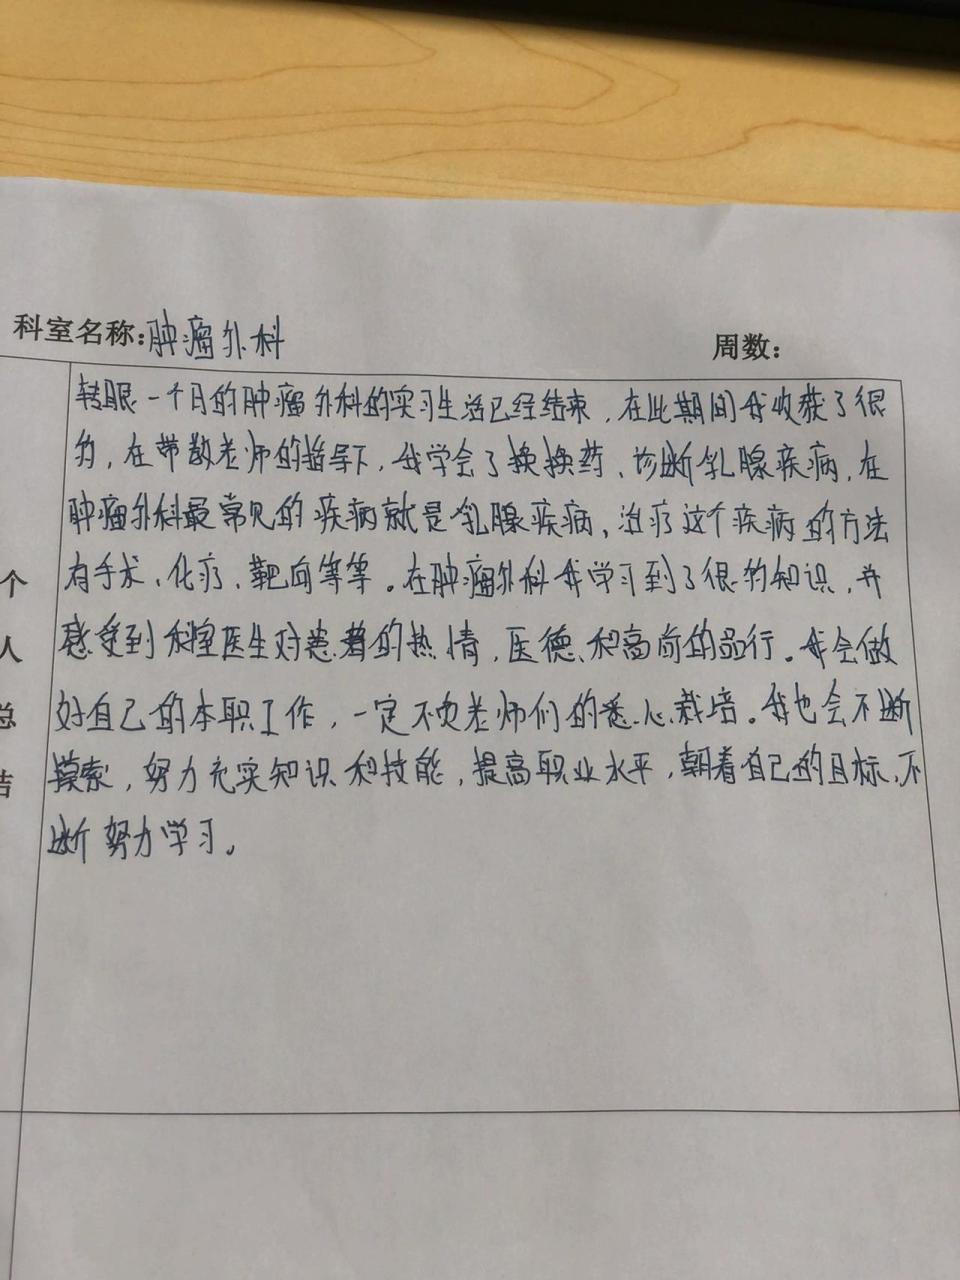 科室名称:肿瘤外科 周数:
转眼一个月的肿瘤外科的实习生活已经结束，在此期间我收获了很
多，在带教老师的指导下，我学会了换药、诊断乳腺疾病，在
肿瘤外科最常见的疾病就是乳腺疾病，治疗这个疾病的方法
有手术、化疗、靶向等等。在肿瘤外科我学习到了很多知识，并
感受到科室医生对患者的热情，医德和高尚的品行。我会做
好自己的本职工作，一定不负老师们的悉心栽培。我也会不断
摸索，努力充实知识和技能，提高职业水平，朝着自己的目标，不
断努力学习。
个
人
总
结